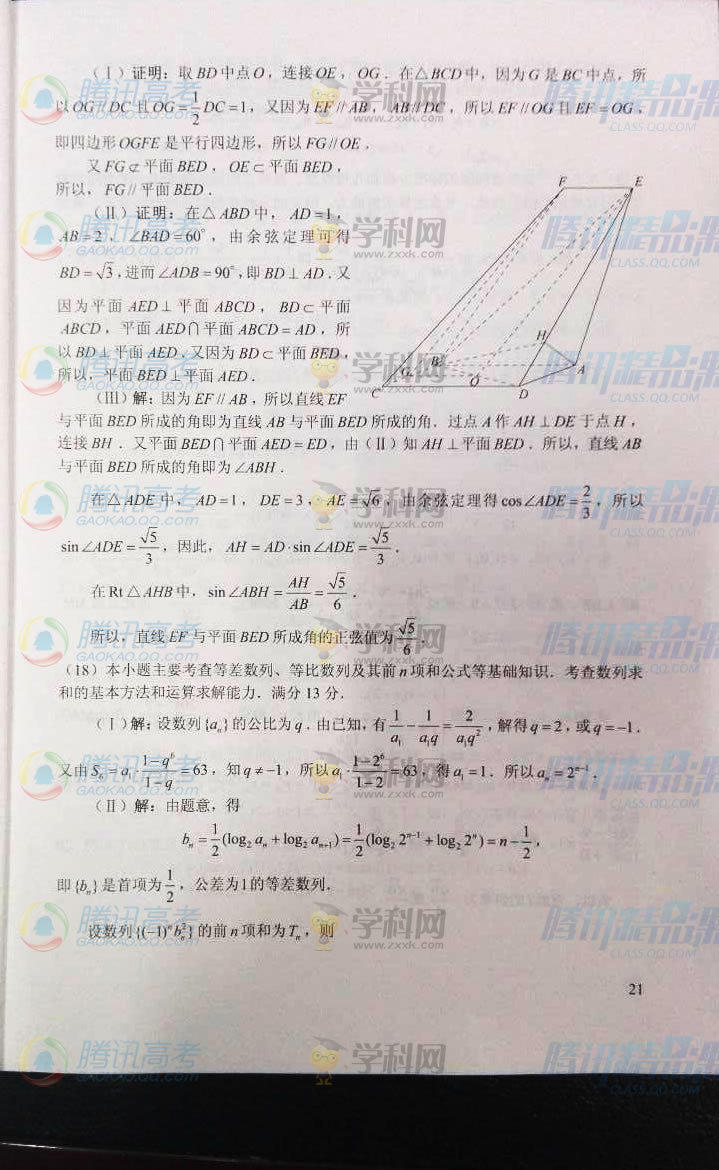 (Ⅰ)证明:取BD中点O,连接OE,OG.在△BCD中,因为G是BC中点,所
以OG∥DC且OG=1/2DC=1,又因为EF∥AB,AB∥DC,所以EF∥OG且EF=OG,
即四边形OGFE是平行四边形,所以FG∥OE.
又FG⊄平面BED,OE⊂平面BED,
所以,FG∥平面BED.
(Ⅱ)证明:在△ABD中,AD=1,
AB=2,∠BAD=60°,由余弦定理可得
BD=√3,进而∠ADB=90°,即BD⊥AD.又
因为平面AED⊥平面ABCD,BD⊂平面
ABCD,平面AED∩平面ABCD=AD,所
以BD⊥平面AED.又因为BD⊂平面BED,
所以,平面BED⊥平面AED.
F E
H
G B A
C O D
(Ⅲ)解:因为EF∥AB,所以直线EF
与平面BED所成的角即为直线AB与平面BED所成的角.过点A作AH⊥DE于点H,
连接BH.又平面BED∩平面AED=ED,由(Ⅱ)知AH⊥平面BED.所以,直线AB
与平面BED所成的角即为∠ABH.
在△ADE中,AD=1,DE=3,AE=√6,由余弦定理得cos∠ADE=2/3,所以
sin∠ADE=√5/3,因此,AH=AD·sin∠ADE=√5/3.
在Rt△AHB中,sin∠ABH=AH/AB=√5/6.
所以,直线EF与平面BED所成角的正弦值为√5/6.
(18)本小题主要考查等差数列、等比数列及其前n项和公式等基础知识.考查数列求
和的基本方法和运算求解能力.满分13分.
(Ⅰ)解:设数列{aₙ}的公比为q.由已知,有1/a₁-1/(a₁q)=2/(a₁q²),解得q=2,或q=-1.
又由Sₙ=a₁·(1-q⁶)/(1-q)=63,知q≠-1,所以a₁·(1-2⁶)/(1-2)=63,得a₁=1.所以aₙ=2ⁿ⁻¹.
(Ⅱ)解:由题意,得
bₙ=1/2(log₂aₙ+log₂aₙ₊₁)=1/2(log₂2ⁿ⁻¹+log₂2ⁿ)=n-1/2,
即{bₙ}是首项为1/2,公差为1的等差数列.
设数列{(-1)ⁿbₙ²}的前n项和为Tₙ,则
21
腾讯高考
GAOKAO.QQ.COM
学科网
www.zxxk.com
腾讯精品课
CLASS.QQ.COM